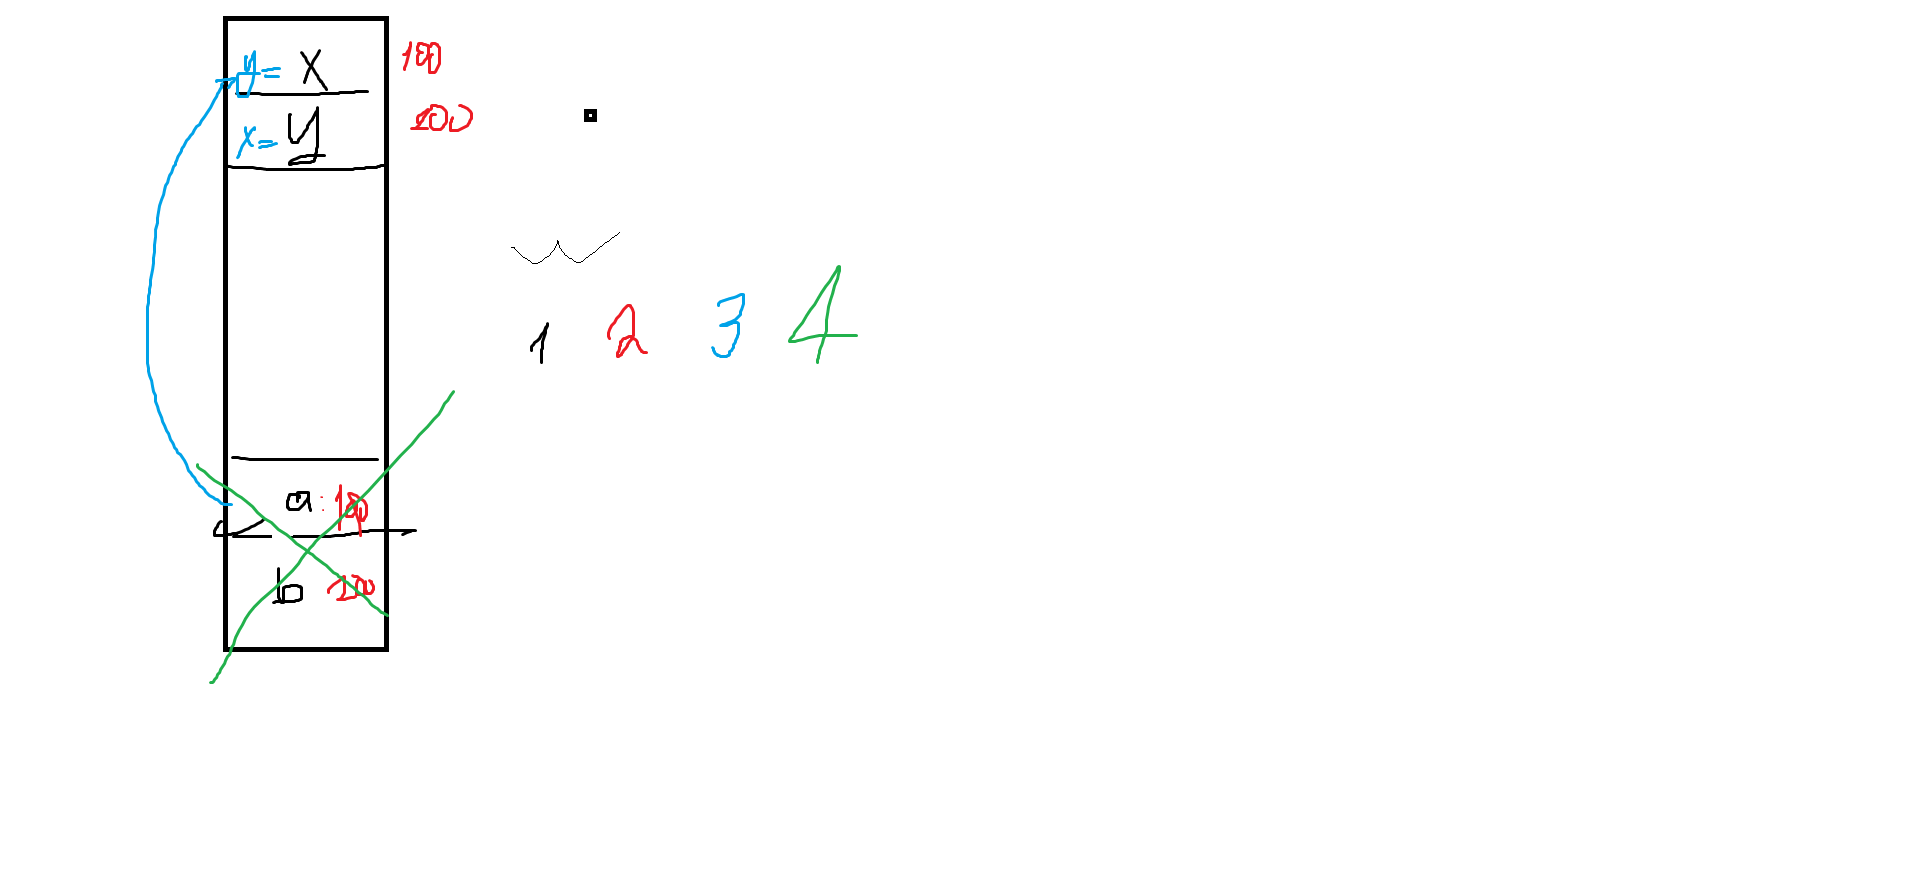 y= x 100
x= y 200
1 2 3 4
a: 100
b 200